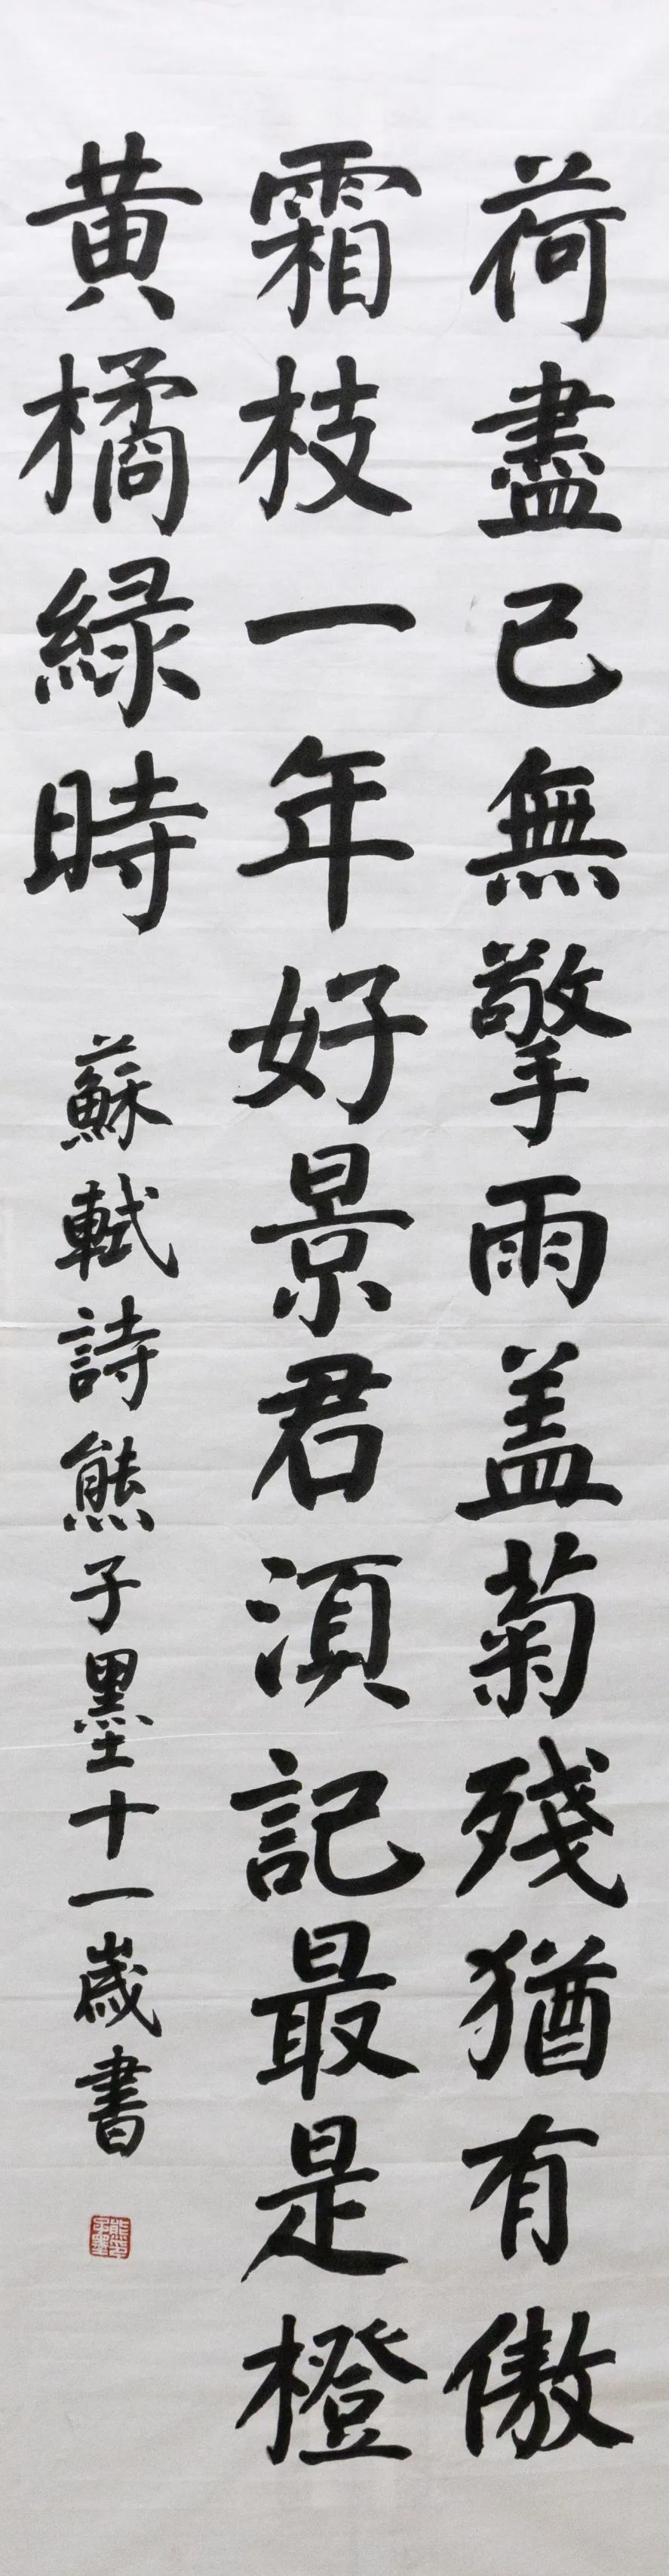 荷盡已無擎雨盖菊殘猶有傲
霜枝一年好景君湏記最是橙
黃橘緑時
蘇軾詩熊子墨十一歲書